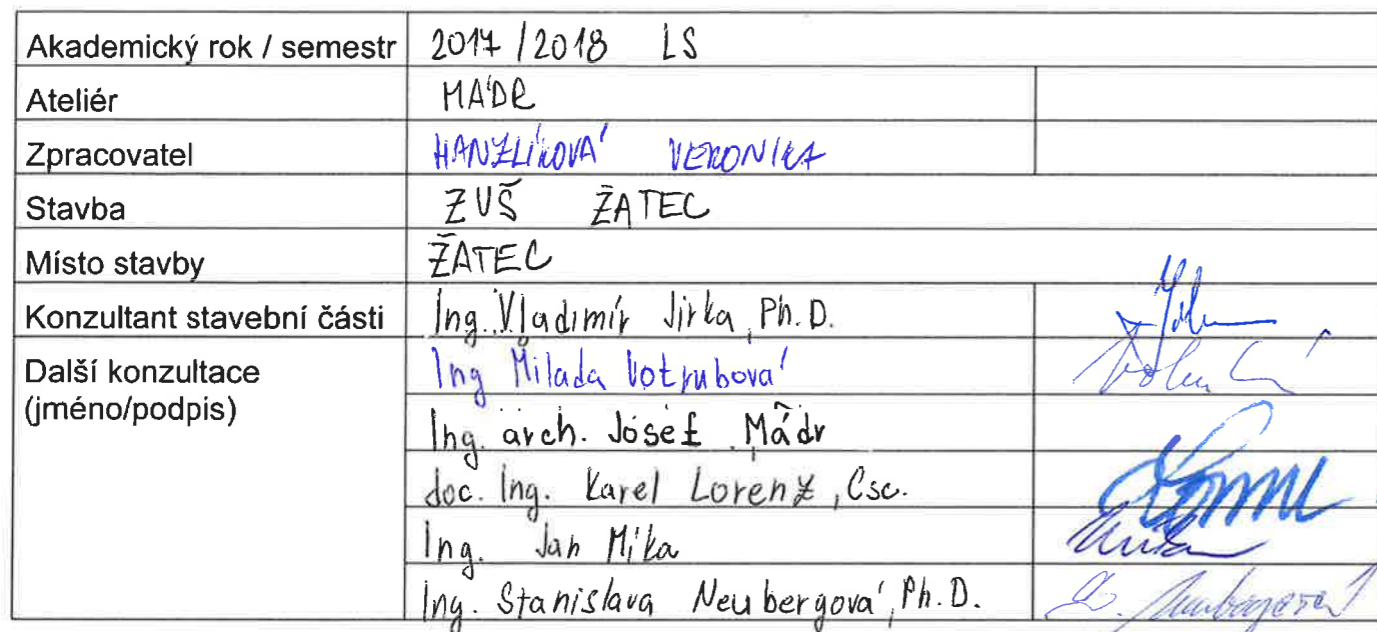 Akademický rok / semestr 2017/2018 LS
Ateliér MÁDR
Zpracovatel HANZLÍKOVÁ VERONIKA
Stavba ZUŠ ŽATEC
Místo stavby ŽATEC
Konzultant stavební části Ing. Vladimír Jirka, Ph.D.
Další konzultace Ing Milada Votrubová
(jméno/podpis) Ing. arch. Josef Mádr
doc. Ing. Karel Lorenz, Csc.
Ing. Jan Míka
Ing. Stanislava Neubergová, Ph.D.